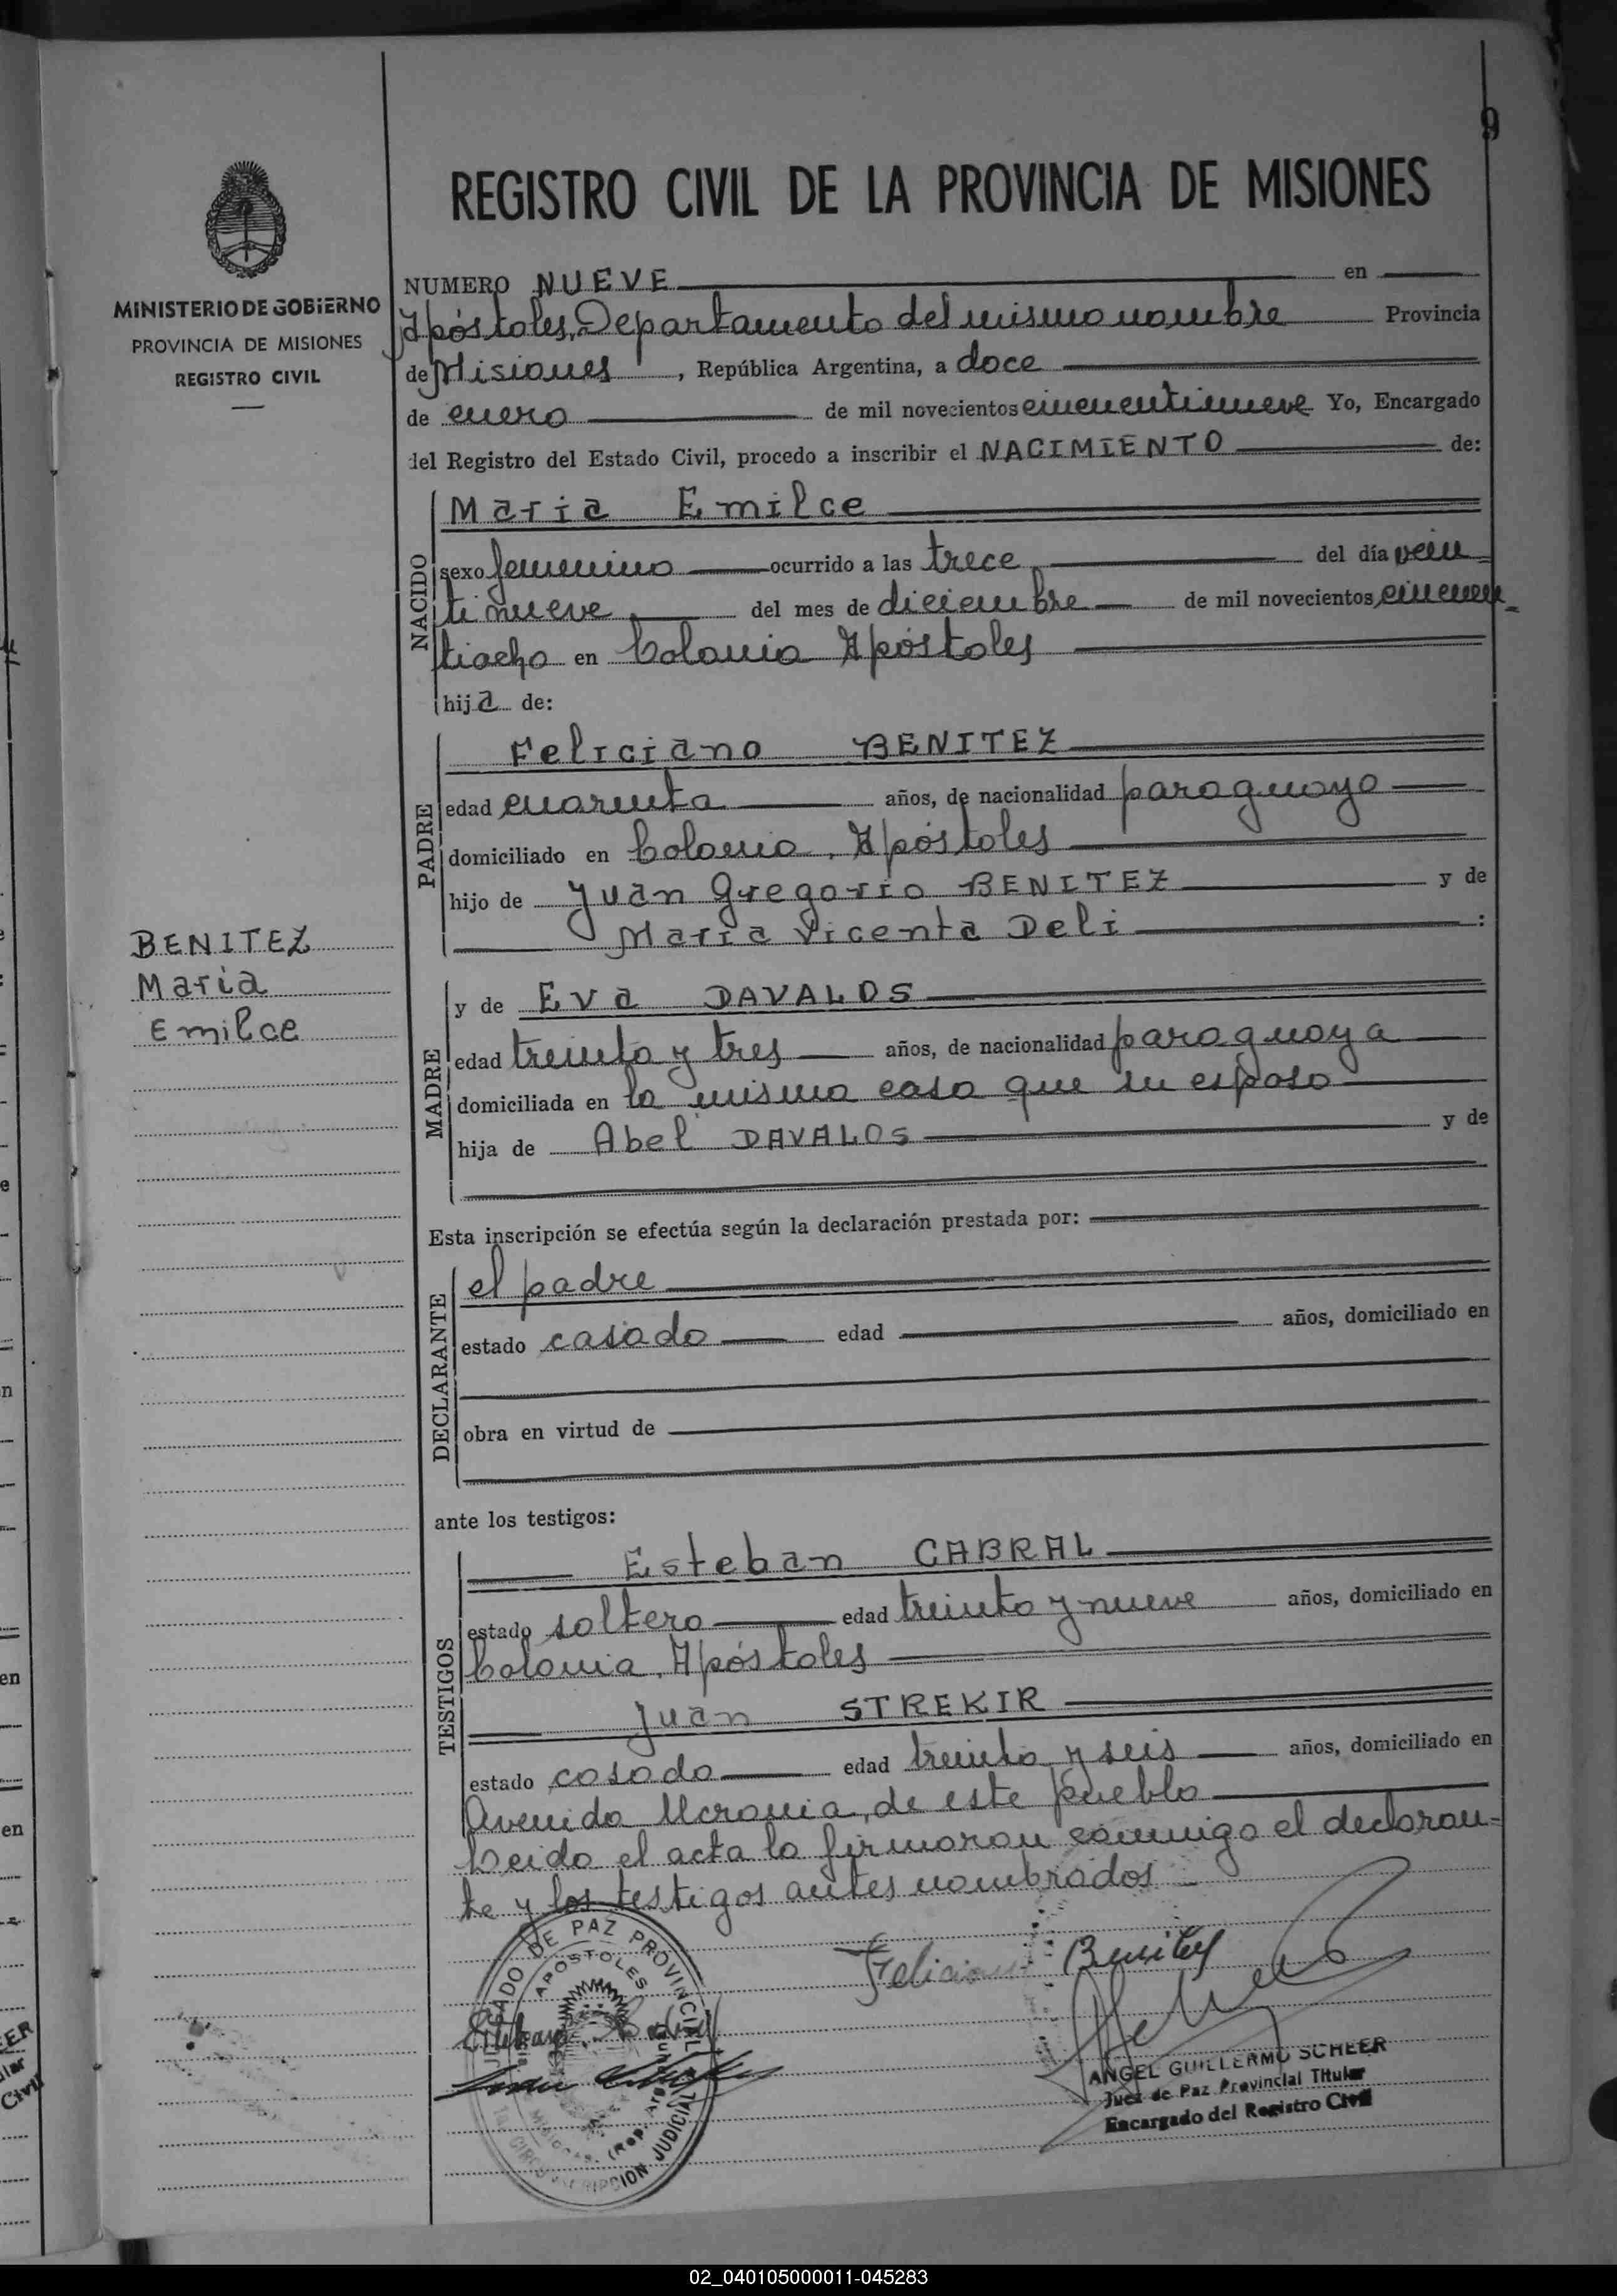 9
REGISTRO CIVIL DE LA PROVINCIA DE MISIONES
MINISTERIO DE GOBIERNO
PROVINCIA DE MISIONES
REGISTRO CIVIL
BENITEZ
Maria
Emilce
NUMERO NUEVE en
Apóstoles, Departamento del mismo nombre Provincia
de Misiones, República Argentina, a doce
de enero de mil novecientos cincuentinueve Yo, Encargado
del Registro del Estado Civil, procedo a inscribir el NACIMIENTO de:
NACIDO
Maria Emilce
sexo femenino ocurrido a las trece del día vein
tinueve del mes de diciembre de mil novecientos cincuen-
tiocho en Colonia Apóstoles
hija de:
PADRE
Feliciano BENITEZ
edad cuarenta años, de nacionalidad paraguayo
domiciliado en Colonia, Apóstoles
hijo de Juan Gregorio BENITEZ y de
Maria Vicenta Deli :
MADRE
y de Eva DAVALOS
edad treinta y tres años, de nacionalidad paraguaya
domiciliada en la misma casa que su esposo
hija de Abel DAVALOS y de
Esta inscripción se efectúa según la declaración prestada por:
DECLARANTE
el padre
estado casado edad años, domiciliado en
obra en virtud de
ante los testigos:
TESTIGOS
Esteban CABRAL
estado soltero edad treinta y nueve años, domiciliado en
Colonia, Apóstoles
Juan STREKIR
estado casado edad treinta y seis años, domiciliado en
Avenida Ucrania, de este pueblo
Leido el acta la firmaron conmigo el declaran-
te y los testigos antes nombrados
Feliciano Benitez
JUZGADO DE PAZ PROVINCIAL
APOSTOLES
CIRCUNSCRIPCION JUDICIAL
Esteban Cabral
ANGEL GUILLERMO SCHEER
Juez de Paz Provincial Titular
Encargado del Registro Civil
02_040105000011-045283